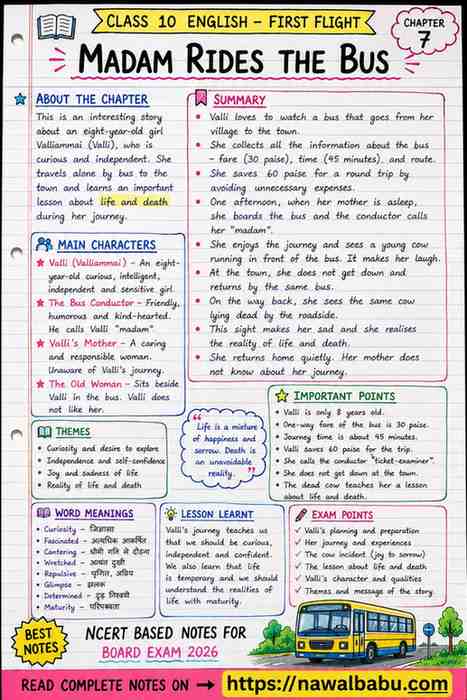 CLASS 10 ENGLISH – FIRST FLIGHT
CHAPTER
7
MADAM RIDES THE BUS
ABOUT THE CHAPTER
This is an interesting story
about an eight-year-old girl
Valliammai (Valli), who is
curious and independent. She
travels alone by bus to the
town and learns an important
lesson about life and death
during her journey.
SUMMARY
Valli loves to watch a bus that goes from her
village to the town.
She collects all the information about the bus
– fare (30 paise), time (45 minutes), and route.
She saves 60 paise for a round trip by
avoiding unnecessary expenses.
One afternoon, when her mother is asleep,
she boards the bus and the conductor calls
her "madam".
She enjoys the journey and sees a young cow
running in front of the bus. It makes her laugh.
At the town, she does not get down and
returns by the same bus.
On the way back, she sees the same cow
lying dead by the roadside.
This sight makes her sad and she realises
the reality of life and death.
She returns home quietly. Her mother does
not know about her journey.
MAIN CHARACTERS
Valli (Valliammai) – An eight-
year-old curious, intelligent,
independent and sensitive girl.
The Bus Conductor – Friendly,
humorous and kind-hearted.
He calls Valli "madam".
Valli's Mother – A caring
and responsible woman.
Unaware of Valli's journey.
The Old Woman – Sits beside
Valli in the bus. Valli does
not like her.
THEMES
Curiosity and desire to explore
Independence and self-confidence
Joy and sadness of life
Reality of life and death
"Life is a mixture
of happiness and
sorrow. Death is
an unavoidable
reality."
IMPORTANT POINTS
Valli is only 8 years old.
One-way fare of the bus is 30 paise.
Journey time is about 45 minutes.
Valli saves 60 paise for the trip.
She calls the conductor "ticket-examiner".
She does not get down at the town.
The dead cow teaches her a lesson
about life and death.
WORD MEANINGS
Curiosity – जिज्ञासा
Fascinated – अत्यधिक आकर्षित
Cantering – धीमी गति से दौड़ना
Wretched – अत्यंत दुखी
Repulsive – घृणित, अप्रिय
Glimpse – झलक
Determined – दृढ़ निश्चयी
Maturity – परिपक्वता
LESSON LEARNT
Valli's journey teaches us
that we should be curious,
independent and confident.
We also learn that life
is temporary and we should
understand the realities of
life with maturity.
EXAM POINTS
Valli's planning and preparation
Her journey and experiences
The cow incident (joy to sorrow)
The lesson about life and death
Valli's character and qualities
Themes and message of the story
BEST
NOTES
NCERT BASED NOTES FOR
BOARD EXAM 2026
READ COMPLETE NOTES ON → https://nawalbabu.com